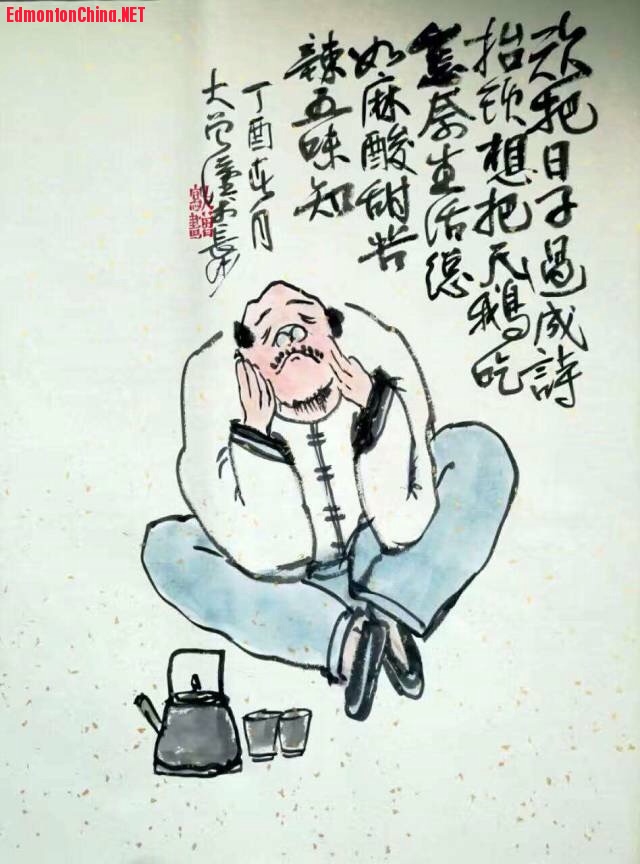 EdmontonChina.NET
欲把日子過成詩
抬頭想把天鵝吃
怎奈生活總
如麻酸甜苦
辣五味知
丁酉春月